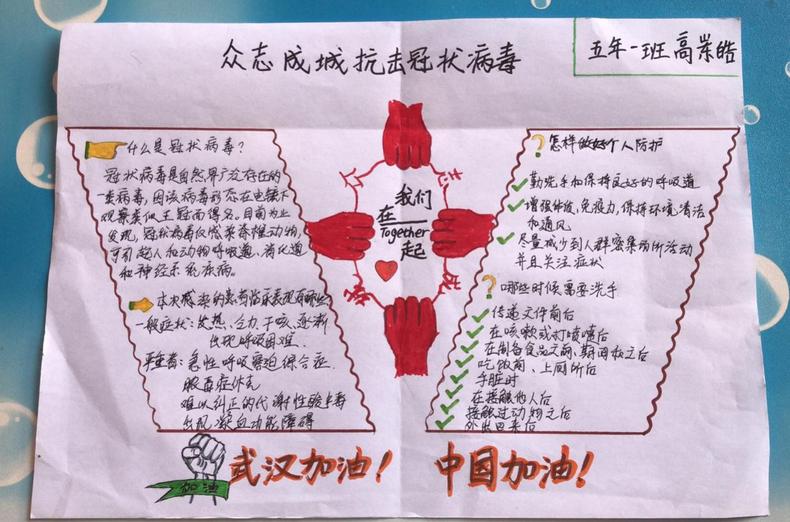 众志成城抗击冠状病毒
五年一班高崇皓
什么是冠状病毒？
冠状病毒是自然界广泛存在的
一类病毒，因该病毒形态在电镜下
观察类似王冠而得名。目前为止
发现，冠状病毒仅感染脊椎动物，
可引起人和动物呼吸道、消化道
和神经系统疾病。
本次感染的患者临床表现有哪些？
一般症状：发热、乏力、干咳、逐渐
出现呼吸困难。
严重者：急性呼吸窘迫综合症
脓毒症休克
难以纠正的代谢性酸中毒
出现凝血功能障碍
我们
在
Together
一起
怎样做好个人防护
勤洗手和保持良好的呼吸道
增强体质、免疫力，保持环境清洁
和通风
尽量减少到人群密集场所活动
并且关注症状
哪些时候需要洗手
传递文件前后
在咳嗽或打喷嚏后
在制备食品之前、期间和之后
吃饭前、上厕所后
手脏时
在接触他人后
接触过动物之后
外出回来后
加油
武汉加油！
中国加油！